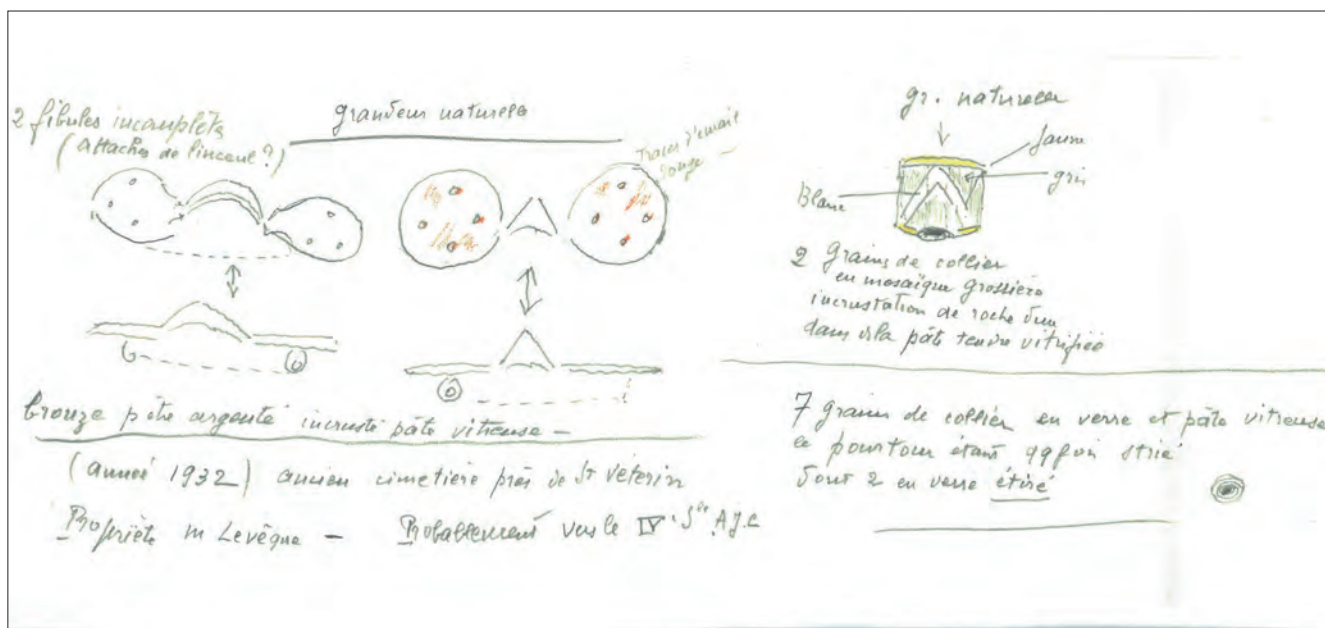 2 fibules incomplèts
(attaches de linceul ?)
grandeur naturelle
Traces d'émail
rouge
bronze pêtre argenté incrusté pâte vitreuse -
(année 1932) ancien cimetière près de St Véterin
Propriète m Levêque - Probablement vers le IVe Sle A.J.C
gr. naturelle
Jaune
gris
Blanc
2 grains de collier
en mosaïque grossière
incrustation de roche dure
dans la pâte tendre vitrifiée
7 grains de collier en verre et pâte vitreuse
le pourtour étant qqfois strié
dont 2 en verre étiré